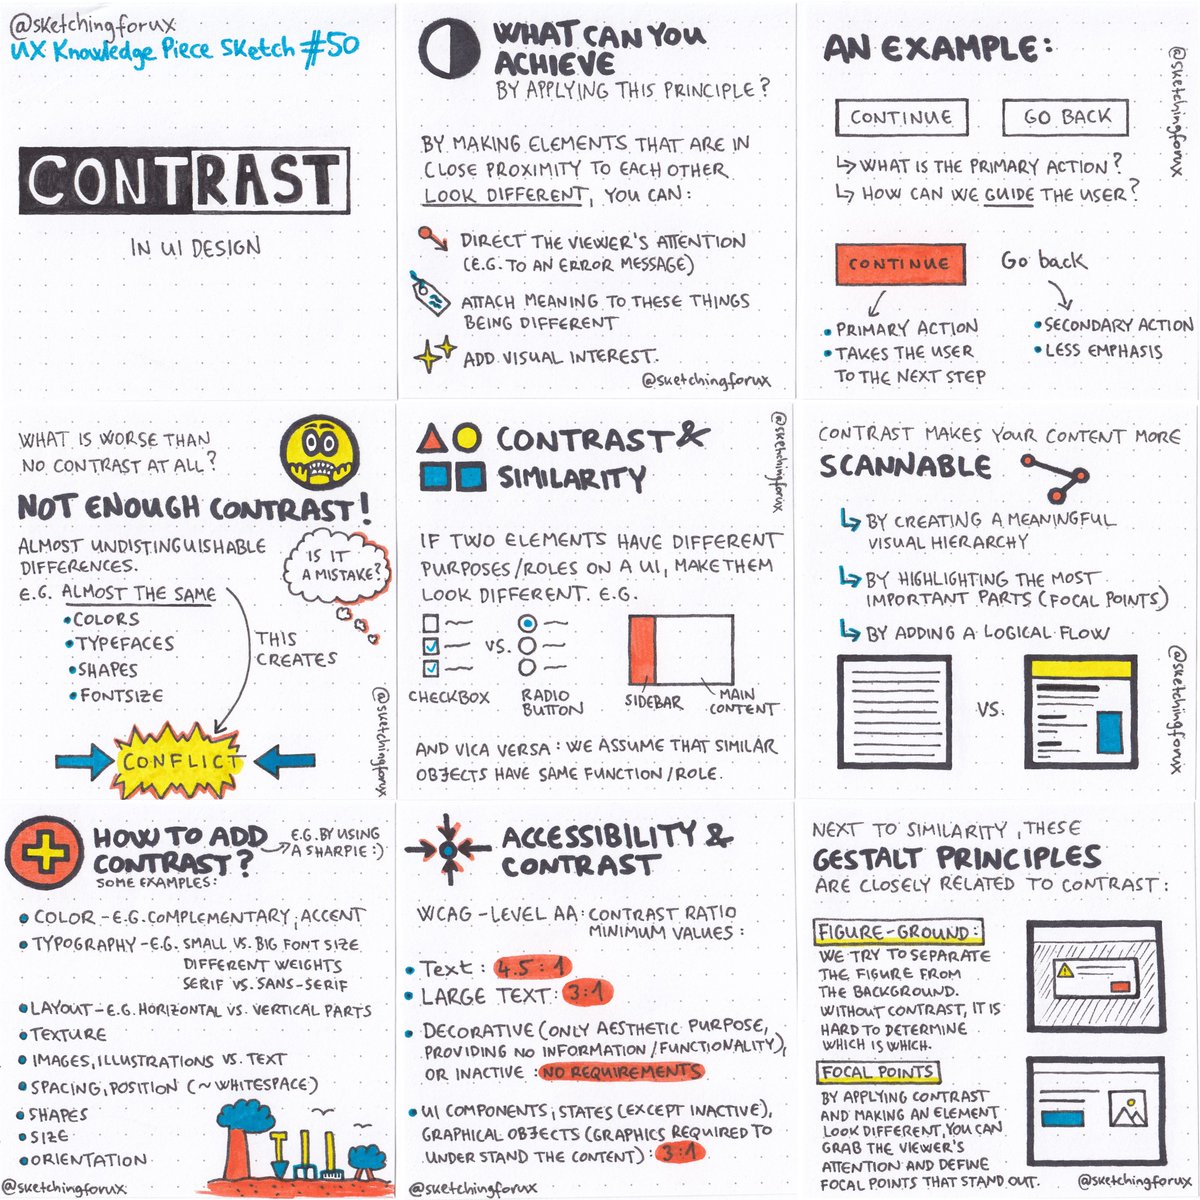 @sketchingforux
UX Knowledge Piece Sketch #50
CONTRAST
IN UI DESIGN
WHAT CAN YOU
ACHIEVE
BY APPLYING THIS PRINCIPLE?
BY MAKING ELEMENTS THAT ARE IN
CLOSE PROXIMITY TO EACH OTHER
LOOK DIFFERENT, YOU CAN:
DIRECT THE VIEWER'S ATTENTION
(E.G. TO AN ERROR MESSAGE)
ATTACH MEANING TO THESE THINGS
BEING DIFFERENT
ADD VISUAL INTEREST.
@sketchingforux
AN EXAMPLE:
@sketchingforux
CONTINUE
GO BACK
WHAT IS THE PRIMARY ACTION?
HOW CAN WE GUIDE THE USER?
CONTINUE
Go back
• PRIMARY ACTION
• TAKES THE USER
TO THE NEXT STEP
• SECONDARY ACTION
• LESS EMPHASIS
WHAT IS WORSE THAN
NO CONTRAST AT ALL?
NOT ENOUGH CONTRAST!
ALMOST UNDISTINGUISHABLE
DIFFERENCES.
E.G. ALMOST THE SAME
• COLORS
• TYPEFACES
• SHAPES
• FONTSIZE
IS IT
A MISTAKE?
THIS
CREATES
CONFLICT
@sketchingforux
CONTRAST &
SIMILARITY
@sketchingforux
IF TWO ELEMENTS HAVE DIFFERENT
PURPOSES/ROLES ON A UI, MAKE THEM
LOOK DIFFERENT. E.G.
VS.
CHECKBOX
RADIO
BUTTON
SIDEBAR
MAIN
CONTENT
AND VICA VERSA: WE ASSUME THAT SIMILAR
OBJECTS HAVE SAME FUNCTION/ROLE.
CONTRAST MAKES YOUR CONTENT MORE
SCANNABLE
BY CREATING A MEANINGFUL
VISUAL HIERARCHY
BY HIGHLIGHTING THE MOST
IMPORTANT PARTS (FOCAL POINTS)
BY ADDING A LOGICAL FLOW
VS.
@sketchingforux
HOW TO ADD
CONTRAST?
E.G. BY USING
A SHARPIE :)
SOME EXAMPLES:
• COLOR - E.G. COMPLEMENTARY, ACCENT
• TYPOGRAPHY - E.G. SMALL VS. BIG FONT SIZE
DIFFERENT WEIGHTS
SERIF VS. SANS-SERIF
• LAYOUT - E.G. HORIZONTAL VS. VERTICAL PARTS
• TEXTURE
• IMAGES, ILLUSTRATIONS VS. TEXT
• SPACING, POSITION (~WHITESPACE)
• SHAPES
• SIZE
• ORIENTATION
@sketchingforux
ACCESSIBILITY &
CONTRAST
WCAG - LEVEL AA: CONTRAST RATIO
MINIMUM VALUES:
• Text: 4.5:1
• LARGE TEXT: 3:1
• DECORATIVE (ONLY AESTHETIC PURPOSE,
PROVIDING NO INFORMATION/FUNCTIONALITY),
OR INACTIVE: NO REQUIREMENTS
• UI COMPONENTS, STATES (EXCEPT INACTIVE),
GRAPHICAL OBJECTS (GRAPHICS REQUIRED TO
UNDERSTAND THE CONTENT): 3:1
@sketchingforux
NEXT TO SIMILARITY, THESE
GESTALT PRINCIPLES
ARE CLOSELY RELATED TO CONTRAST:
FIGURE-GROUND:
WE TRY TO SEPARATE
THE FIGURE FROM
THE BACKGROUND.
WITHOUT CONTRAST, IT IS
HARD TO DETERMINE
WHICH IS WHICH.
FOCAL POINTS
BY APPLYING CONTRAST
AND MAKING AN ELEMENT
LOOK DIFFERENT, YOU CAN
GRAB THE VIEWER'S
ATTENTION AND DEFINE
FOCAL POINTS THAT STAND OUT.
@sketchingforux